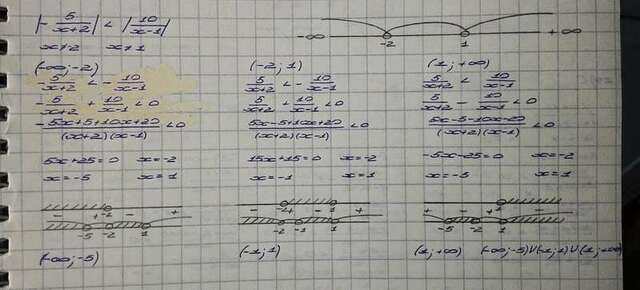 |-5/(x+2)| < |10/(x-1)|
x≠2 x≠1
-∞ -2 1 +∞
(-∞; -2)
-5/(x+2) < -10/(x-1)
-5/(x+2) + 10/(x-1) < 0
(-5x+5+10x+20)/((x+2)(x-1)) < 0
5x+25=0 x=-2
x=-5 x=1
- + -2 - +
-5 -2 1
(-∞; -5)
(-2; 1)
5/(x+2) < -10/(x-1)
5/(x+2) + 10/(x-1) < 0
(5x-5+10x+20)/((x+2)(x-1)) < 0
15x+15=0 x=-2
x=-1 x=1
- -2+ - 1 +
-2 -1 1
(-1; 1)
(1; +∞)
5/(x+2) < 10/(x-1)
5/(x+2) - 10/(x-1) < 0
(5x-5-10x-20)/((x+2)(x-1)) < 0
-5x-25=0 x=-2
x=-5 x=1
+ - + 1 -
-5 -2 1
(1; +∞) (-∞; -5)∪(-1; 1)∪(1; +∞)